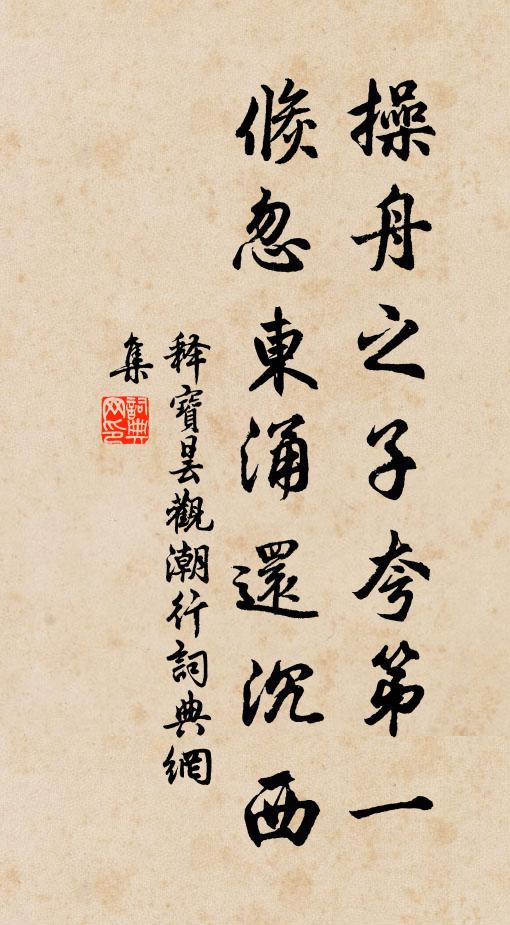 操舟之子夸第一
倏忽東涌還沉西
释寶曇觀潮行詞典網
集
詞典
网印